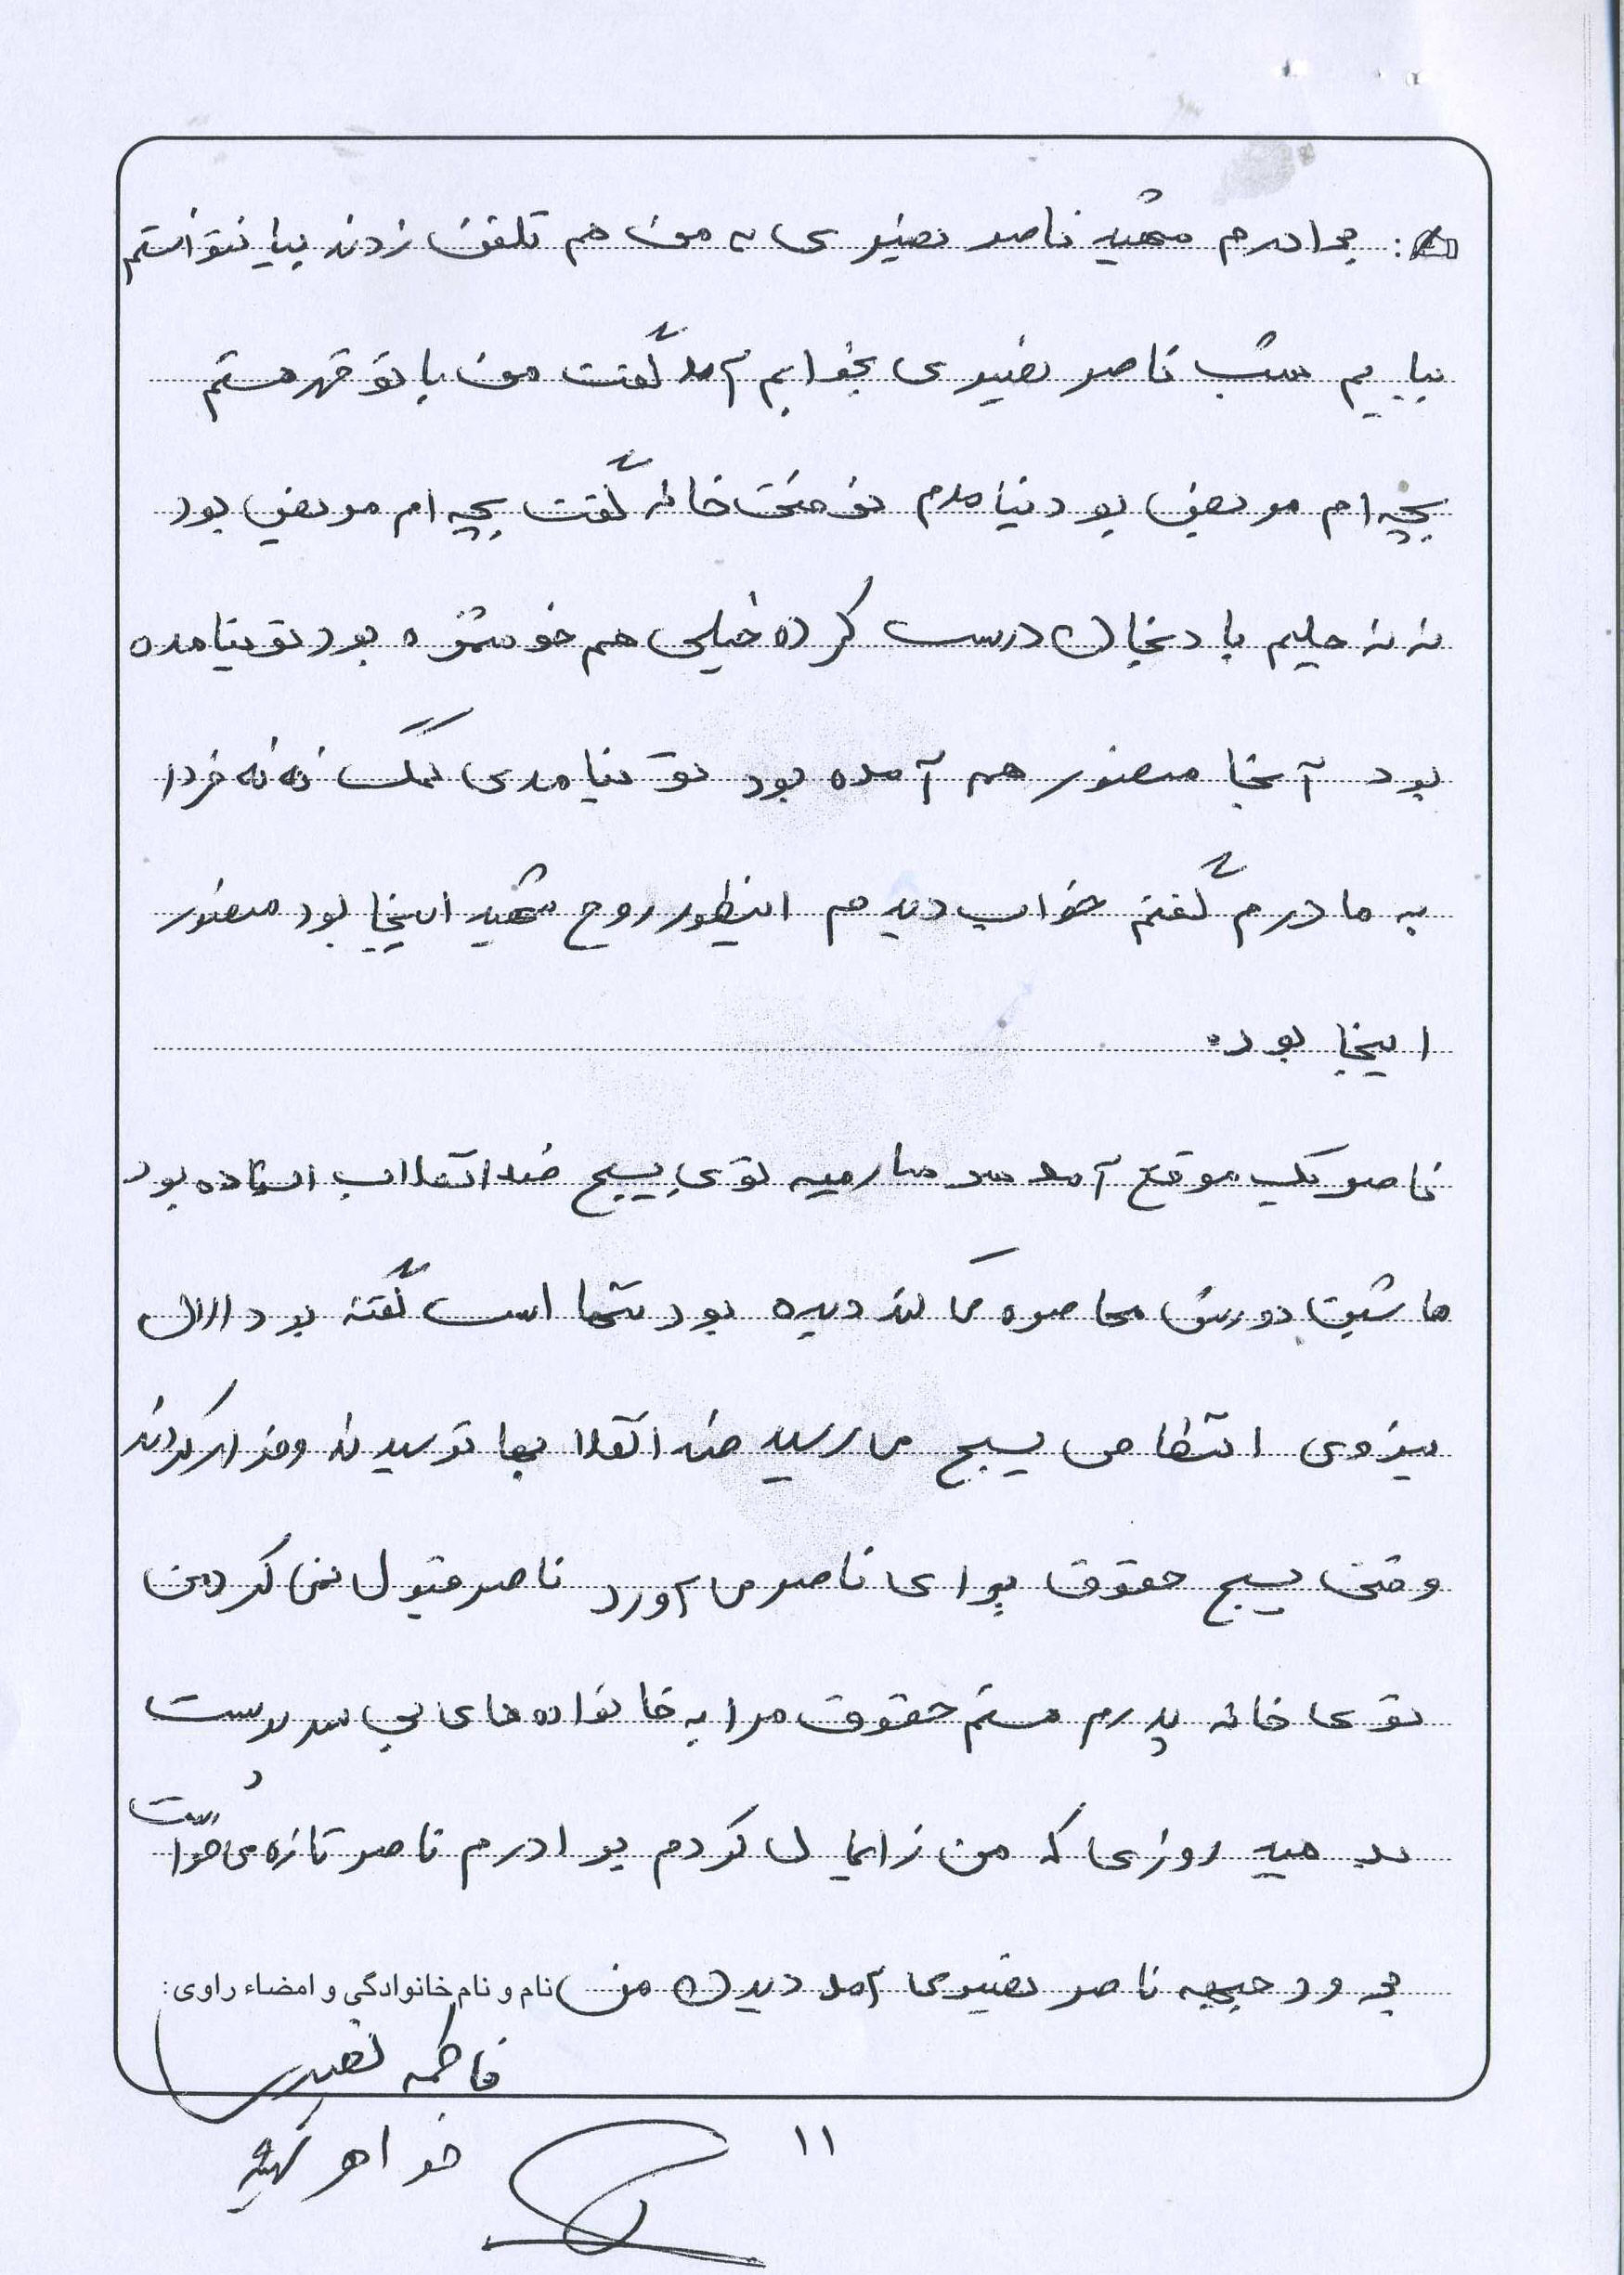 برادرم شهید ناصر نصیری به من هم تلفن زدند بیا نتوانستم
بیایم شب ناصر نصیری بخوابم آمد گفت من با تو قهر هستم
بچه ام مریض بود نیامدم خانه گفت بچه ام مریض بود
نه نه حلیم بادنجان درست کرده خیلی هم خوشمزه بود تو نیامده
بود آنجا منصور هم آمده بود تو نیامدی نه نه فردا
به مادرم گفتم خواب دیدم اینطور روح شهید اینجا بود منصور
اینجا بود.
ناصر یک موقع آمد سر توی بسیج ضد انقلاب استاده بود
ماشین دورش محاصره می کند دیده بود تنها است گفته بود الان
نیروی انتظامی بسیج می رسید ضد انقلا ترسیدند و فرار کردند
وقتی بسیج حقوق برای ناصر می آورد ناصر قبول نمی کرد من
توی خانه پدرم هستم حقوق مرا به خانواده های بی سرپرست
بدهید روزی که من زایمال کردم برادرم ناصر تازه می خواست
برود جبهه ناصر نصیری آمد دیدن من نام و نام خانوادگی و امضاء راوی:
فاطمه نصیری
خواهر شهید
۱۱